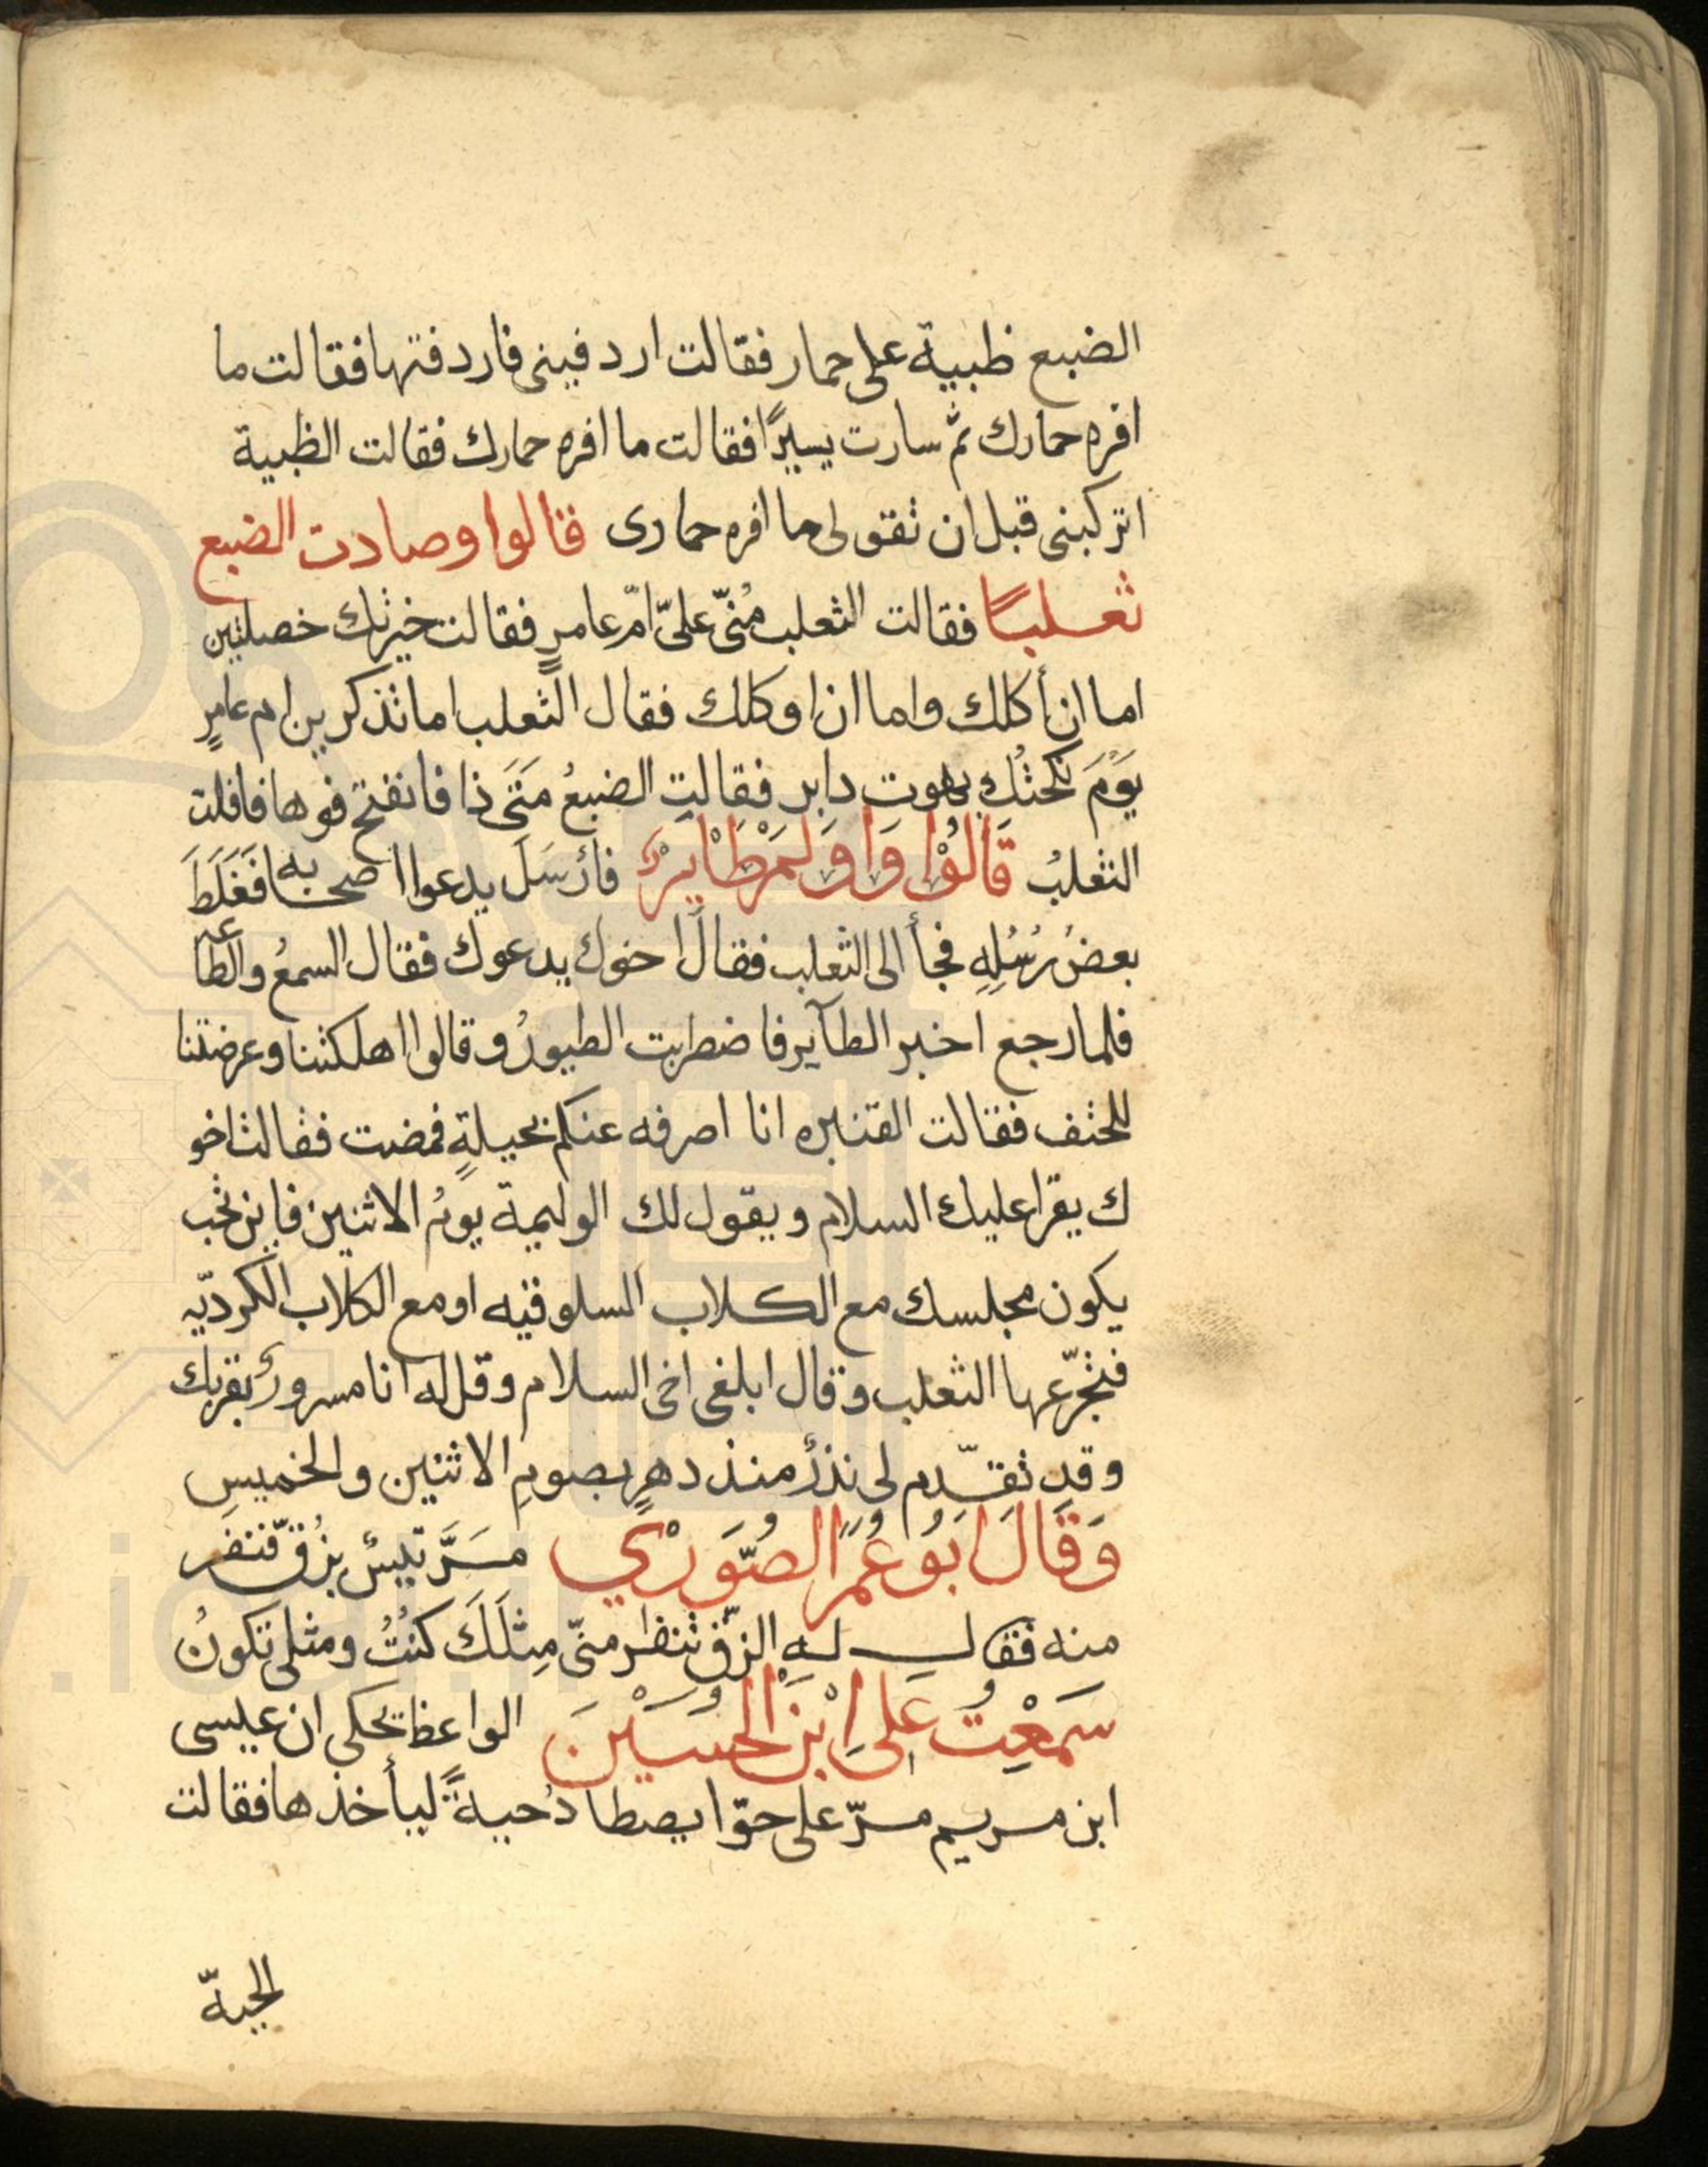 الضبع ظبية على حمار فقالت اردفينى فاردفتها فقالت ما
افره حمارك ثم سارت يسيرًا فقالت ما افره حمارك فقالت الظبية
اتركبنى قبل ان تقولى ما افره حمارى قالوا وصادت الضبع
ثعلبًا فقالت الثعلب مُنّى علىّ امّ عامرٍ فقالت خيرتك خصلتين
اما ان أكلك واما ان اوكلك فقال الثعلب اما تذكرين ام عامرٍ
يَوْمَ نكحتُكِ بهوت دابر فقالتِ الضبعُ مَتَى ذا فانفتح فوها فافلت
الثعلبُ قَالُوْا وَاوَلَمَ طَايرٌ فأرْسَلَ يدعوا اصحابه فَغَلَطَ
بعضُ رُسُلِهِ فجأ الى الثعلب فقال اخوك يدعوك فقال السمعُ والطاعه
فلما رجع اخبر الطآير فاضطربت الطيورُ وقالوا اهلكتنا وعرضتنا
للحتف فقالت القنبره انا اصرفه عنكم بحيلةٍ فمضت فقالت اخو
ك يقرا عليك السلام ويقول لك الوليمة يومُ الاثنين فاين تحب
يكون مجلسك مع الكلاب السلوقيه او مع الكلاب الكرديّه
فتجرّعها الثعلب وقال ابلغى اخى السلام وقل له انا مسرورٌ بقربك
وقد تقدّم لى نذرٌ منذ دهرٍ بصومِ الاثنين والخميسِ
وَقَالَ ابَوُ عُمَرٍ الصُّوَرْي مَرَّ تيسٌ بزُقّ فنفر
منه فقال له الزّق تنفر منّى مِثلَكَ كنتُ ومثلى تكونُ
سَمَعْتُ على اِبْنَ الحُسَيْنَ الواعظ يحكى ان عيسى
ابن مريم مرّ على حوّا يصطادُ حيةً ليأخذها فقالت
الحيّة